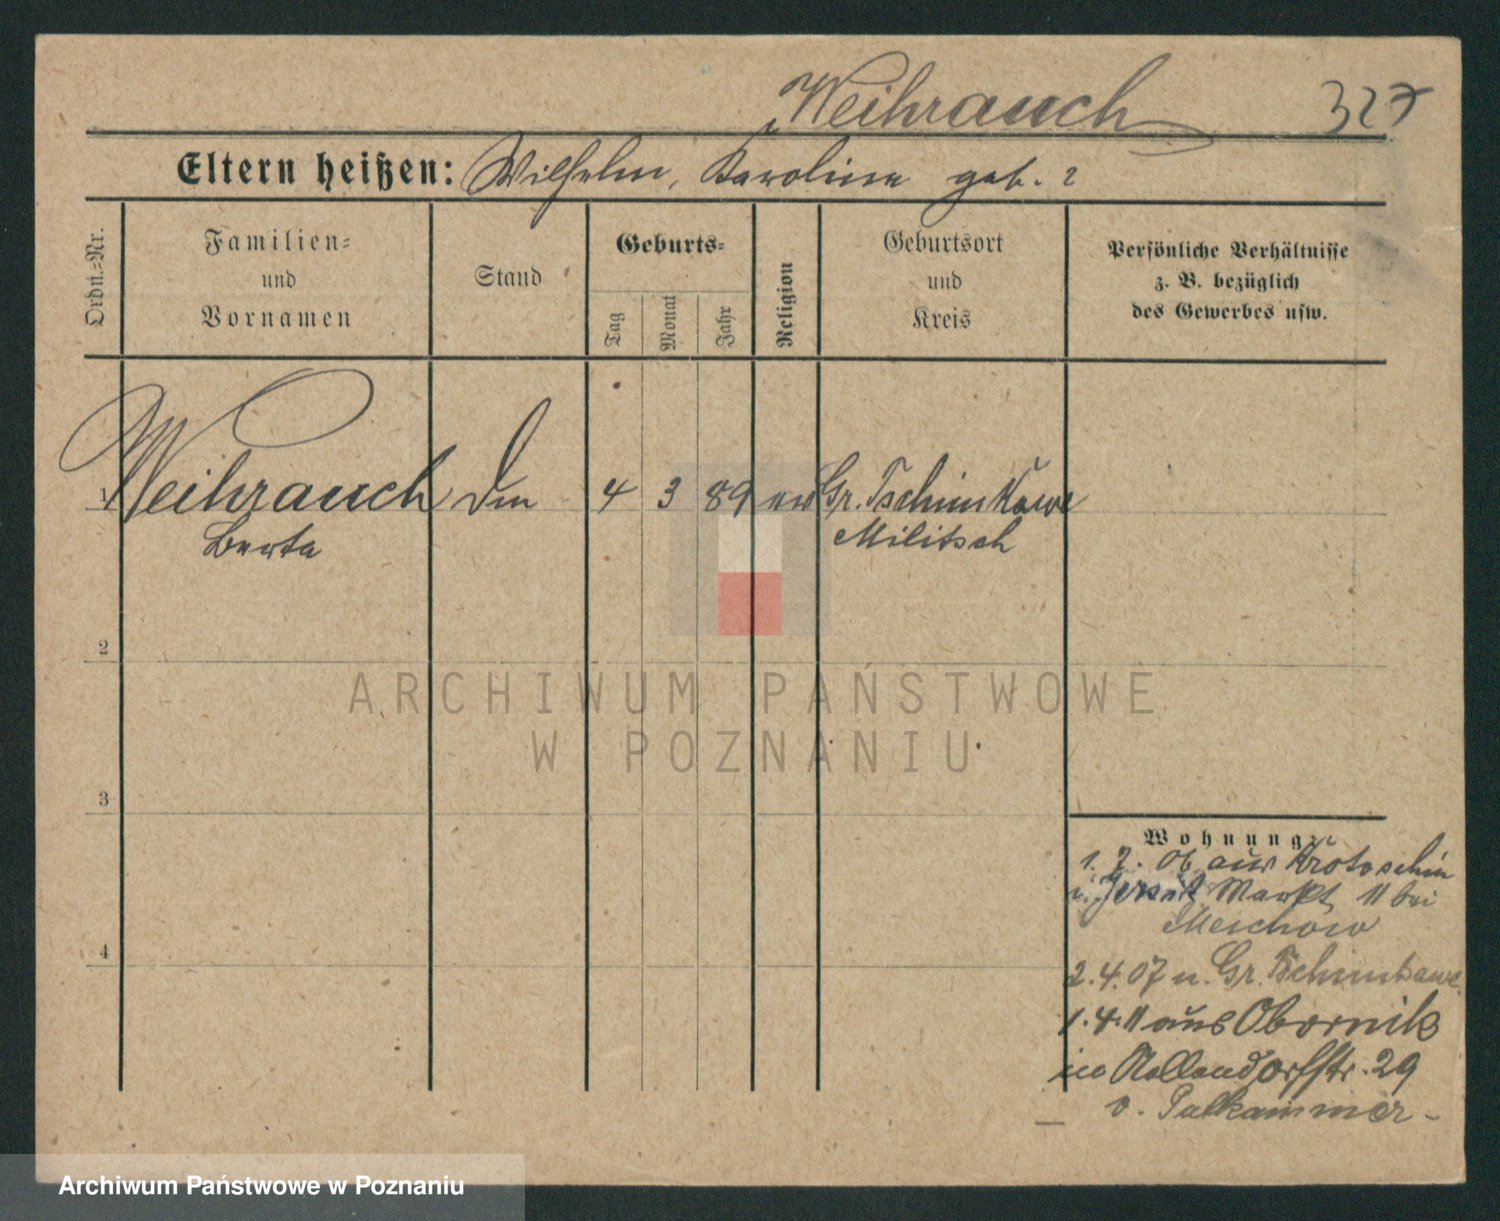 Weihrauch 327
Eltern heißen: Wilhelm, Karoline geb. ?
Ordn.-Nr.
Familien-
und
Vornamen
Stand
Geburts-
Tag
Monat
Jahr
Religion
Geburtsort
und
Kreis
Persönliche Verhältnisse
z. B. bezüglich
des Gewerbes usw.
1 Weihrauch 4 3 89 ev Gr. Tschunkawe
Berta Militsch
2
3
4
Wohnung:
1. 7. 06 aus Krotoschin
Markt 11 bei
2. 4. 07 n. Gr. Tschunkawe
1. 4. 11 aus Obornik
in Nollendorfstr. 29
v. Putkammer
ARCHIWUM PAŃSTWOWE
W POZNANIU
Archiwum Państwowe w Poznaniu